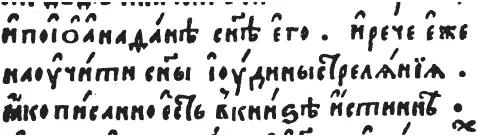 и҆поі҆оа҆нада́нѣ сн҃ѣ є҆го . и҆рече́ є҆же
наоу҆чи́ти сн҃ы і҆оу́дины стрелѧ́нїꙗ .
ꙗ҆копи́санно є҆сть вкни́ѕѣ и҆́стиннѣ .